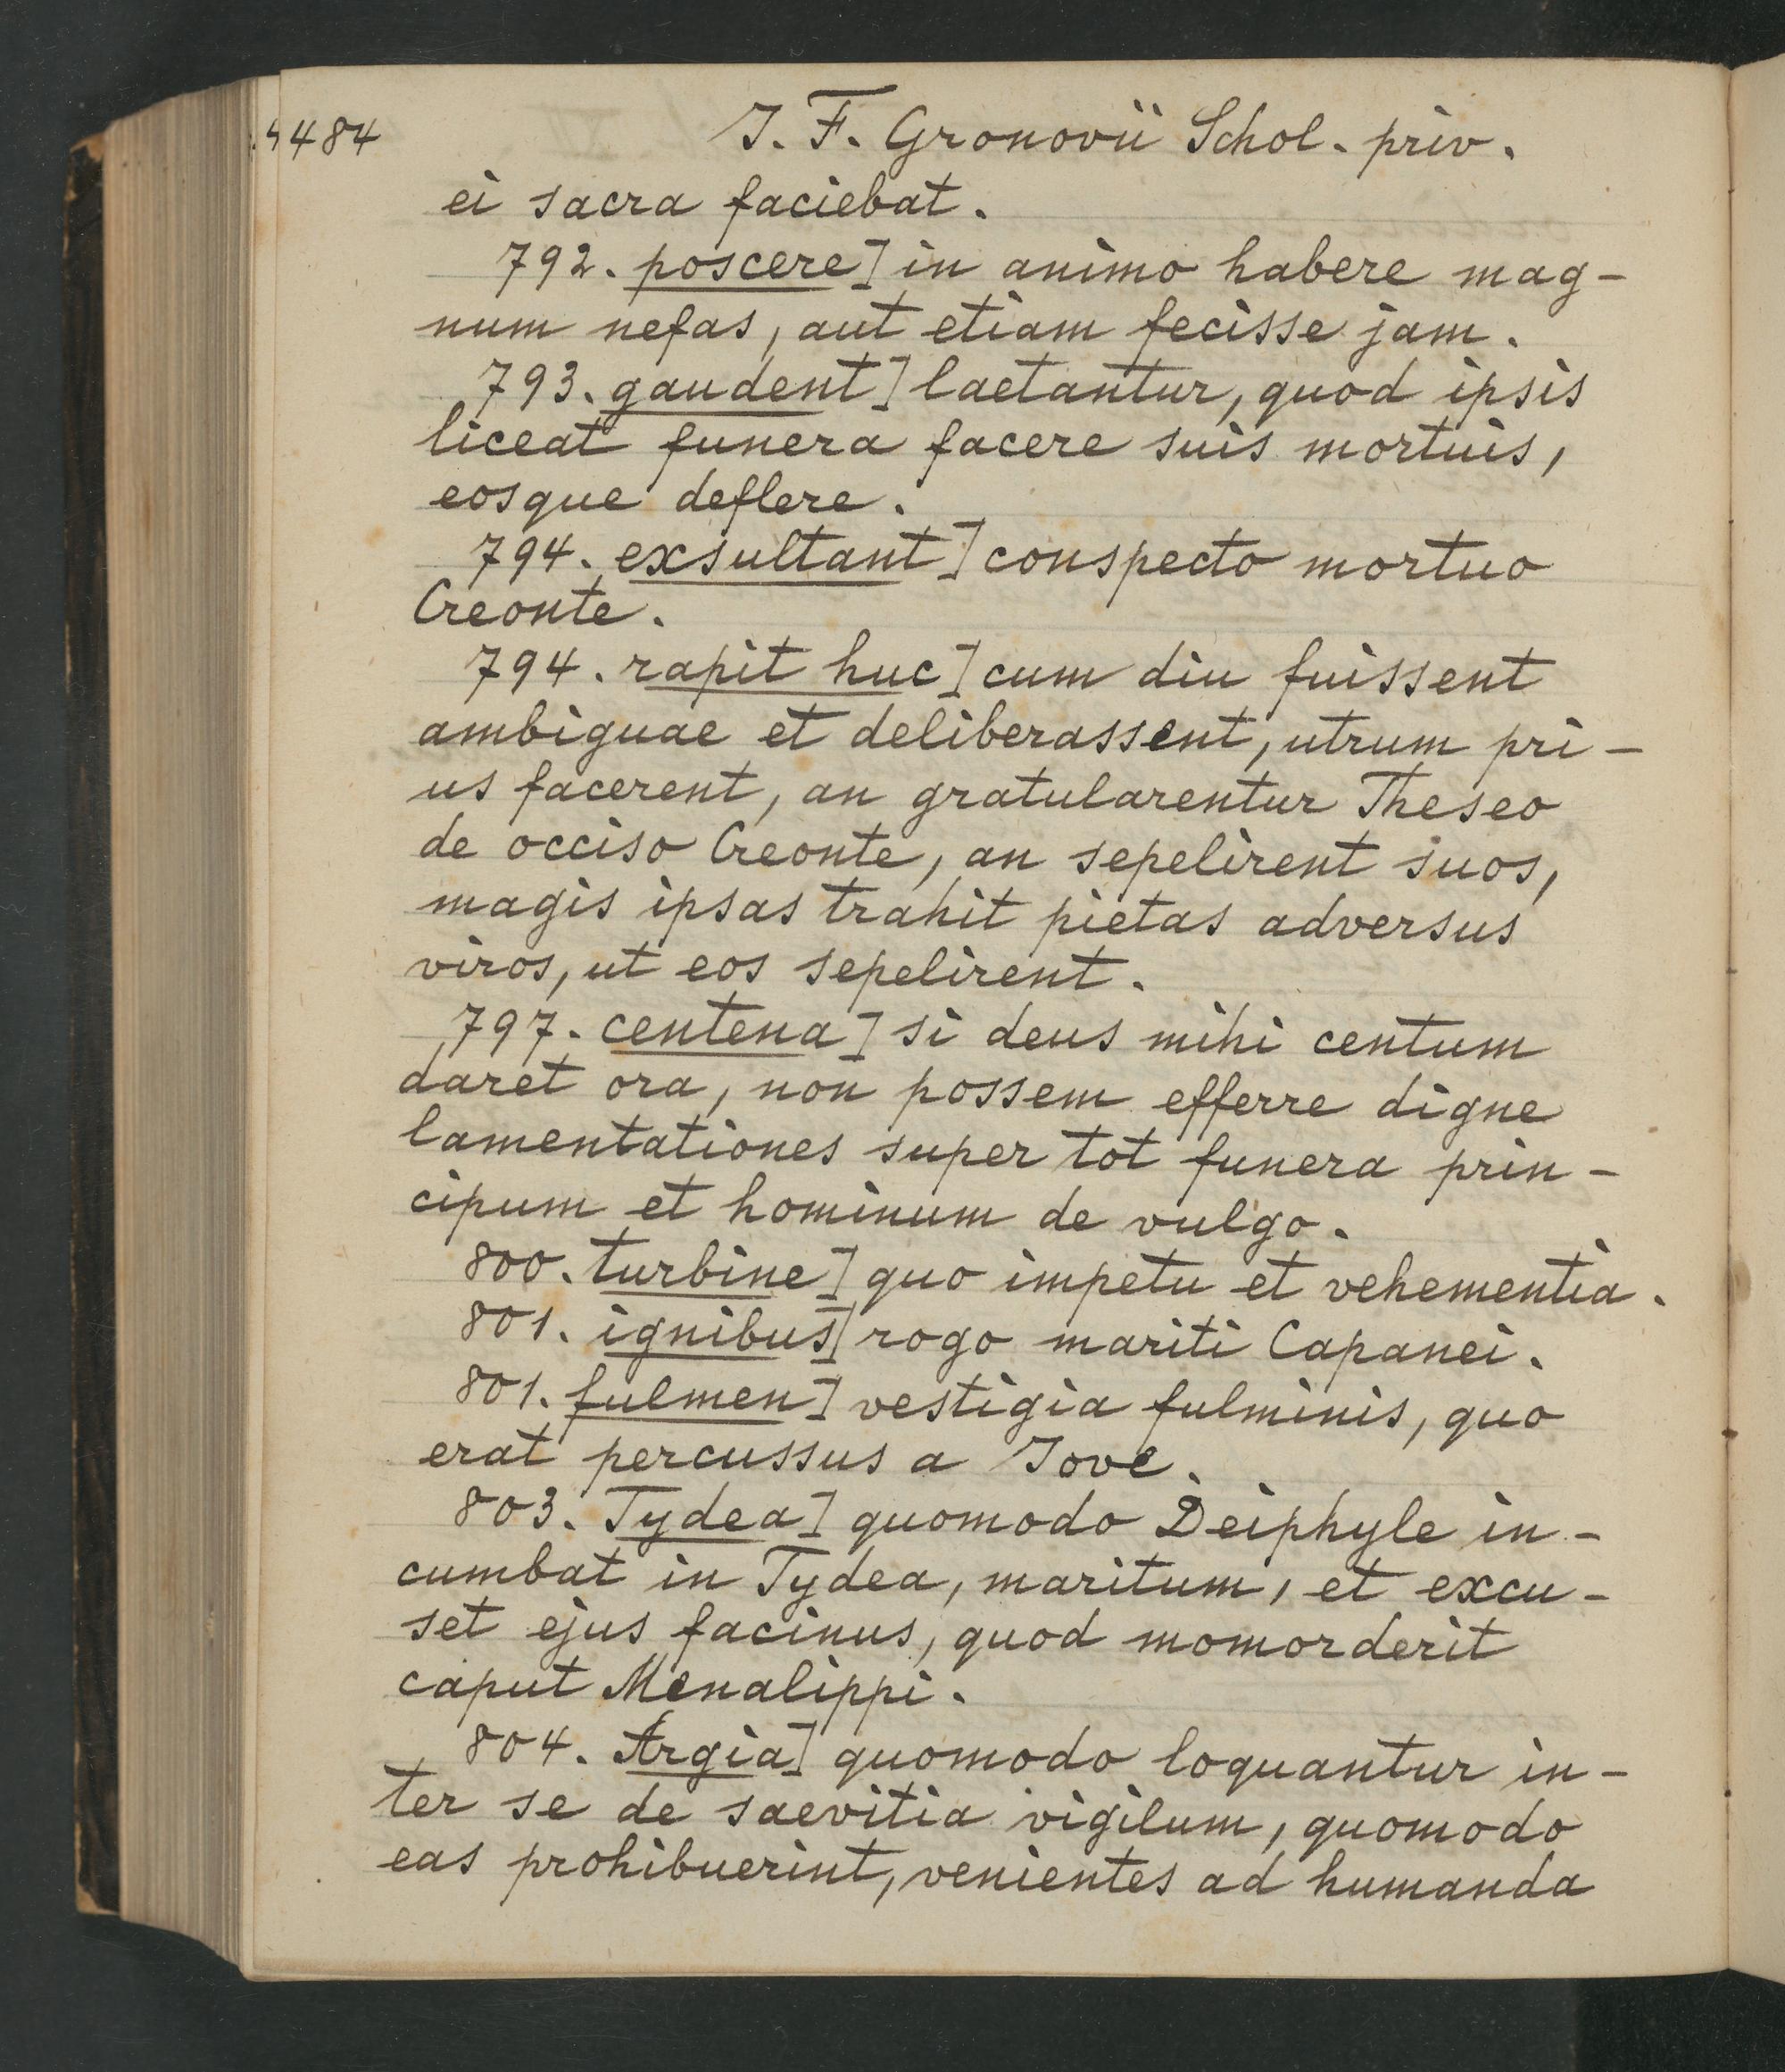 484
J. F. Gronovii Schol. priv.
ei sacra faciebat.
792. poscere] in animo habere mag-
num nefas, aut etiam fecisse jam.
793. gaudent] laetantur, quod ipsis
liceat funera facere suis mortuis,
eosque deflere.
794. exsultant] conspecto mortuo
Creonte.
794. rapit huc] cum diu fuissent
ambiguae et deliberassent, utrum pri-
us facerent, an gratularentur Theseo
de occiso Creonte, an sepelirent suos,
magis ipsas trahit pietas adversus
viros, ut eos sepelirent.
797. centena] si deus mihi centum
daret ora, non possem efferre digne
lamentationes super tot funera prin-
cipum et hominum de vulgo.
800. turbine] quo impetu et vehementia.
801. ignibus] rogo mariti Capanei.
801. fulmen] vestigia fulminis, quo
erat percussus a Jove.
803. Tydea] quomodo Deiphyle in-
cumbat in Tydea, maritum, et excu-
set ejus facinus, quod momorderit
caput Menalippi.
804. Argia] quomodo loquantur in-
ter se de saevitia vigilum, quomodo
eas prohibuerint, venientes ad humanda